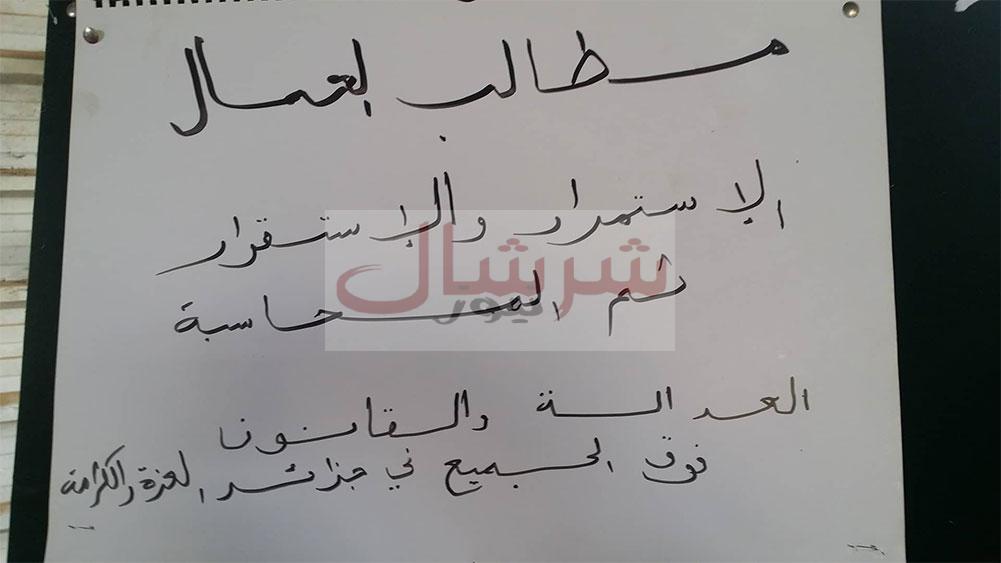 مطالب العمال
الإستمرار والإستقرار
ثم المحاسبة
العدالة والقانون
فوق الجميع في جزائر العزة والكرامة
شرشال
نيوز